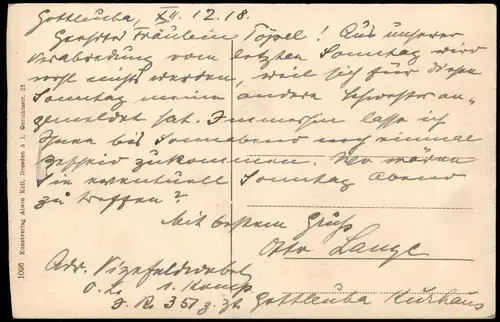 Gottleuba, XII. 12.18.
Geehrtes Fräulein Töpel! Aus unserer
Verabredung vom letzten Sonntag wird
wohl nichts werden, weil sich für diesen
Sonntag meine andere Schwester an-
gemeldet hat. Immerhin lasse ich
Ihnen bis Sonnabend noch einmal
Bescheid zukommen. Wo wären
Sie eventuell Sonntag Abend
zu treffen?
Mit bestem Gruß
Otto Lange
Adr. Vizefeldwebel
O. L. 1. Komp
J. R. 351 z. Zt. Gottleuba Kurhaus
1096 Kunstverlag Alwin Keil, Dresden A 1, Gerichtsstr. 23.